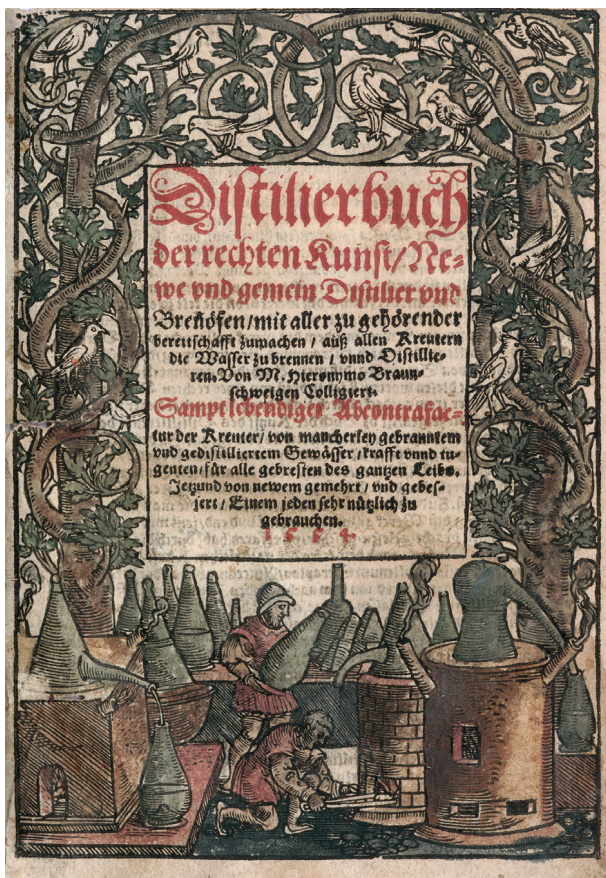 Distilierbuch
der rechten Kunst/Ne-
we vnd gemein Distilier vnd
Breñöfen/mit aller zu gehörender
bereitschafft zumachen / auß allen Kreutern
die Wasser zu brennen / vnnd Distillie-
ren. Von M. Hieronymo Braun-
schweigen Colligiert.
Sampt lebendiger Abcontrafac-
tur der Kreuter/ von mancherley gebranntem
vnd gedistilliertem Gewässer / krafft vnnd tu-
genten / für alle gebresten des gantzen Leibs.
Jetzund von newem gemehrt / vnd gebes-
sert / Einem jeden sehr nützlich zu
gebrauchen.